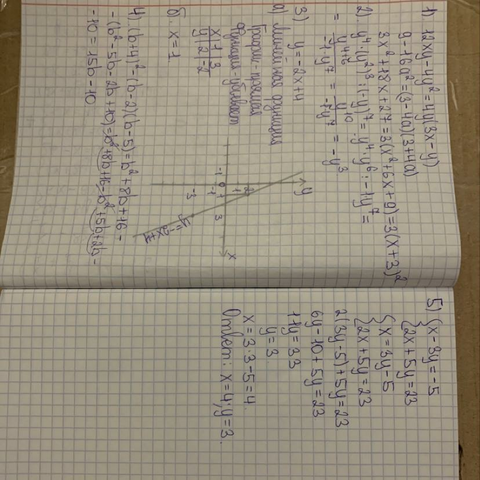 1) 12xy-4y²=4y(3x-y)
9-16a²=(3-4a)(3+4a)
3x²+18x+27=3(x²+6x+9)=3(x+3)²
2) y⁴·(y²)³:(-y)⁷=y⁴·y⁶:-1y⁷=
= y⁴⁺⁶/-1·y⁷ = y¹⁰/-1y⁷ = -y³
3) y=-2x+4
а) Линейная функция
График-прямая
Функция-убывает
x | 1 | 3
y | 2 | -2
y
x
y=-2x+4
б. x=1
4. (b+4)²-(b-2)(b-5)=b²+8b+16-
-(b²-5b-2b+10)=b²+8b+16-b²+5b+2b-
-10=15b-10
5) {x-3y=-5
{2x+5y=23
{x=3y-5
{2x+5y=23
2(3y-5)+5y=23
6y-10+5y=23
11y=33
y=3
x=3·3-5=4
Ответ: x=4; y=3.